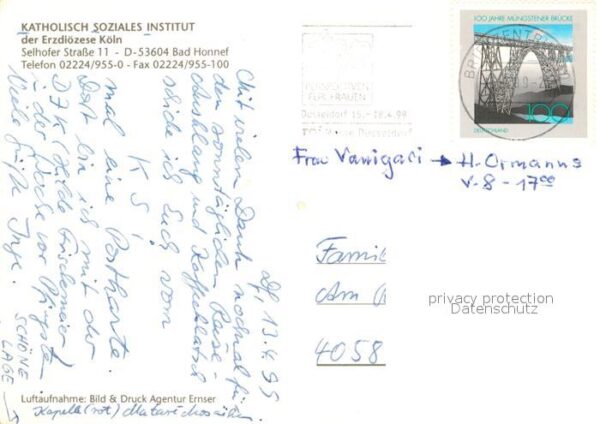 KATHOLISCH SOZIALES INSTITUT
der Erzdiözese Köln
Selhofer Straße 11 - D-53604 Bad Honnef
Telefon 02224/955-0 - Fax 02224/955-100
100 JAHRE MÜNGSTENER BRÜCKE
100
DEUTSCHLAND
BRIEFZENTRUM
FÜR FRAUEN
Düsseldorf 15.-18.4.99
Messe Düsseldorf
Frau → H. Ormanns
v. 8 - 17⁰⁰
Df, 13.4.99
Mit vielem Dank nochmal für
den sonntäglichen Reise-
Ausklang und Kaffeeklatsch
schicke ich Euch vom
KSI
mal eine Postkarte.
Dort bin ich mit der
in der Woche vor Pfingsten
Viele Grüße Inge.
SCHÖNE
LAGE →
Famil
Am
4058
privacy protection
Datenschutz
Luftaufnahme: Bild & Druck Agentur Ernser
Kapelle (rot)